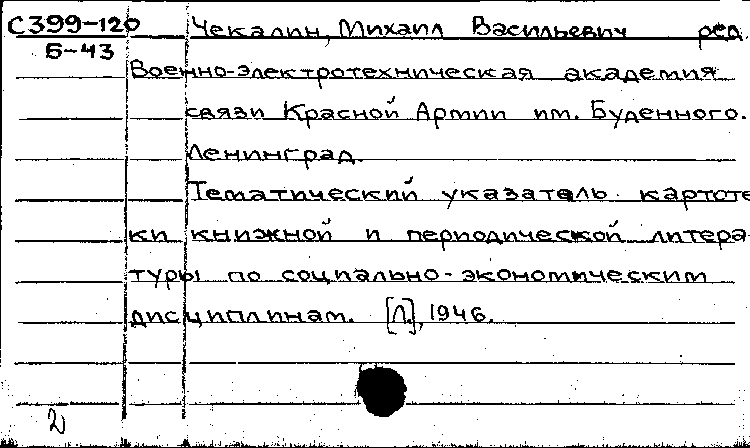 С399-120 Чекалин, Михаил Васильевич ред.
Б-43
Военно-электротехническая академия
связи Красной Армии им. Буденного.
Ленинград.
Тематический указатель картоте
ки книжной и периодической литера
туры по социально-экономическим
дисциплинам. [Л.], 1946.